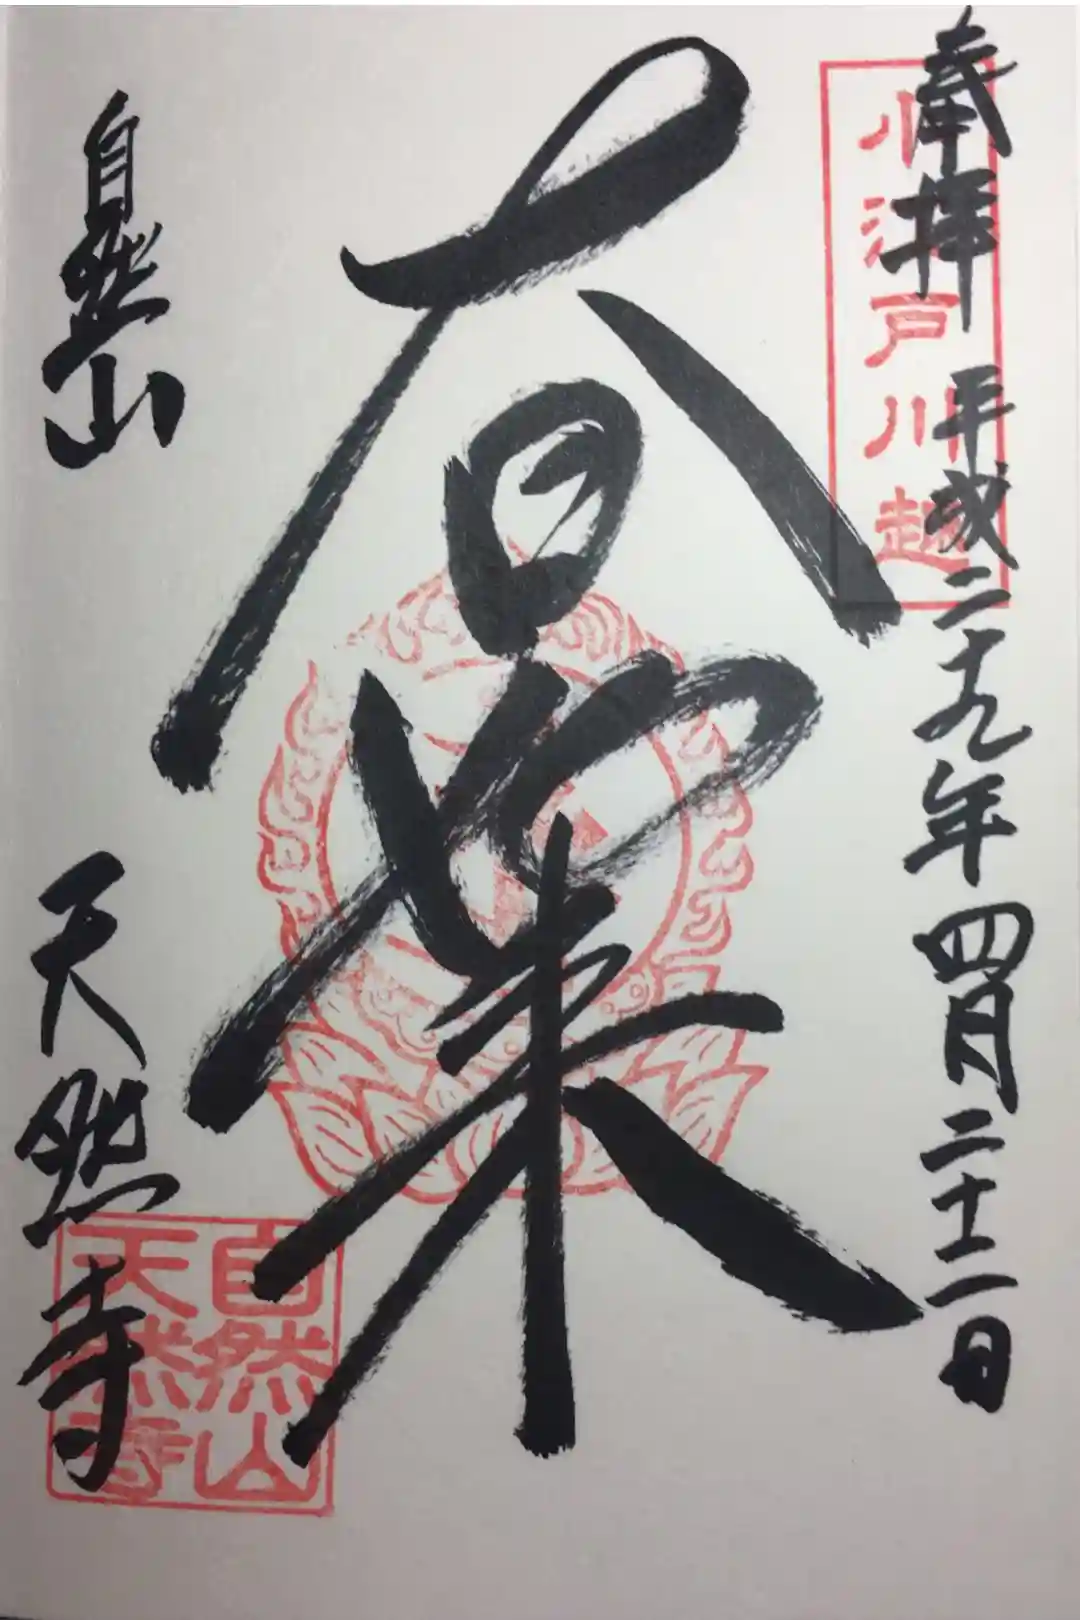 奉拝 平成二十九年四月二十二日
小江戸川越
大日如来
自然山 天然寺
自然山
天然寺